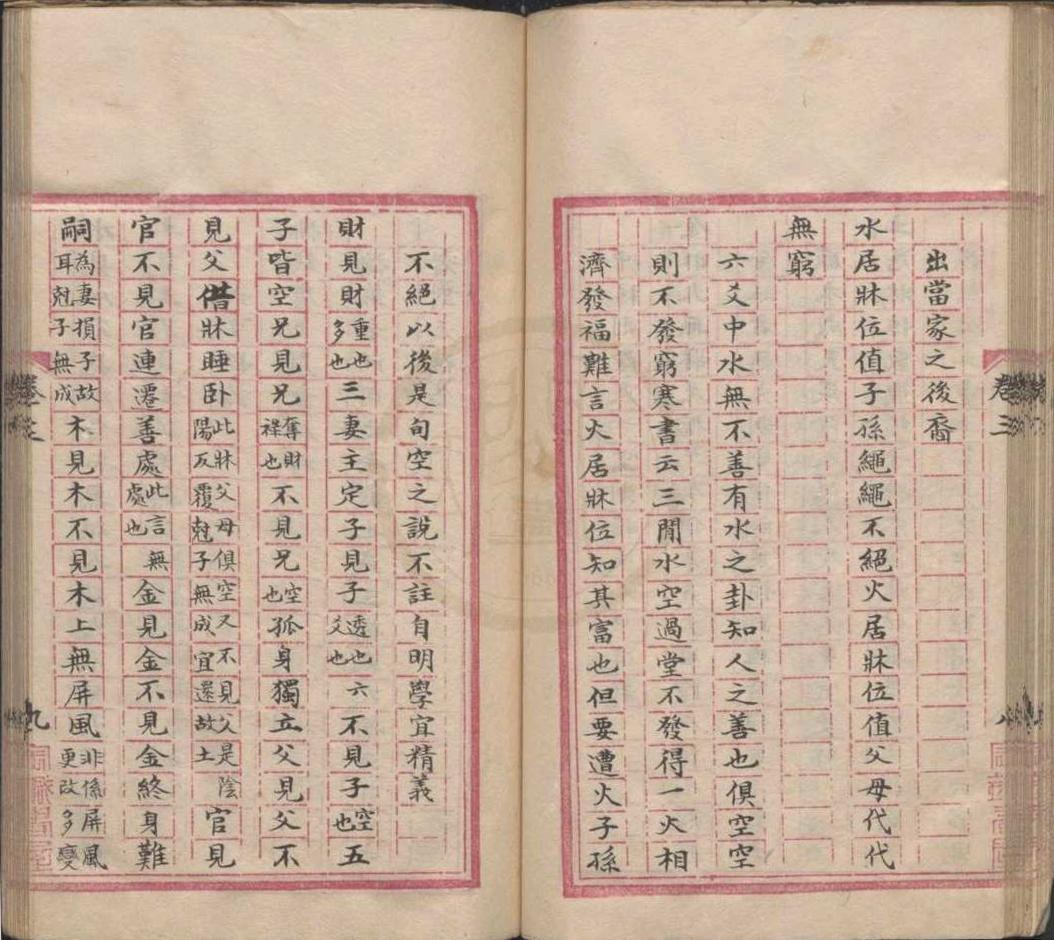 出當家之後裔
水居牀位值子孫繩繩不絕火居牀位值父母代代
無窮
六爻中水無不善有水之卦知人之善也俱空空
則不發窮寒書云三間水空過堂不發得一火相
濟發福難言火居牀位知其富也但要遭火子孫
卷三
八
不絕以後是旬空之說不註自明學宜精義
財見財重也多也三妻主定子見子透也父也六不見子空也五
子皆空兄見兄奪財祿也不見兄空也孤身獨立父見父不
見父借牀睡臥此牀父母俱空又不見父是陰陽反覆尅子無成宜還故土官見
官不見官連遷善處此言無處也金見金不見金終身難
嗣為妻損子故耳尅子無成木見木不見木上無屏風非係屏風更改多變
九